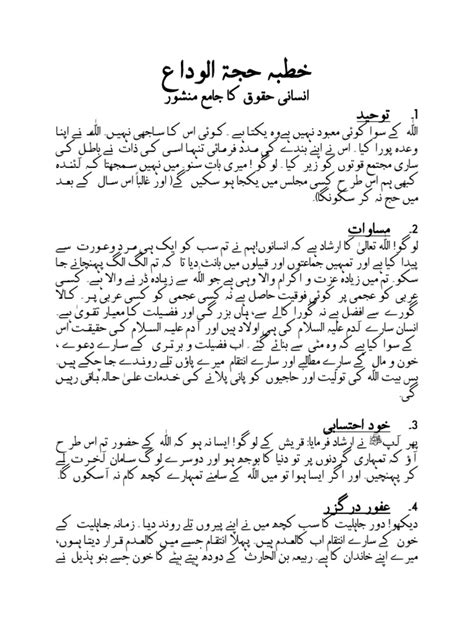 خطبہ حجۃ الوداع
انسانی حقوق کا جامع منشور
1. توحید
اللہ کے سوا کوئی معبود نہیں ہے وہ یکتا ہے۔ کوئی اس کا ساجھی نہیں۔ اللہ نے اپنا
وعدہ پورا کیا۔ اس نے اپنے بندے کی مدد فرمائی تنہا اسی کی ذات نے باطل کی
ساری مجتمع قوتوں کو زیر کیا۔ لوگو! میری بات سنو، میں نہیں سمجھتا کہ آئندہ
کبھی ہم اس طرح کسی مجلس میں یکجا ہو سکیں گے (اور غالباً اس سال کے بعد
میں حج نہ کر سکونگا)۔
2. مساوات
لوگو! اللہ تعالیٰ کا ارشاد ہے کہ انسانوں! ہم نے تم سب کو ایک ہی مرد و عورت سے
پیدا کیا ہے اور تمہیں جماعتوں اور قبیلوں میں بانٹ دیا تا کہ تم الگ الگ پہچانے جا
سکو۔ تم میں زیادہ عزت و اکرام والا وہی ہے جو اللہ سے زیادہ ڈرنے والا ہے۔ کسی
عربی کو عجمی پر کوئی فوقیت حاصل ہے نہ کسی عجمی کو کسی عربی پر۔ کالا
گورے سے افضل ہے نہ گورا کالے سے، ہاں بزرگی اور فضیلت کا معیار تقویٰ ہے۔
انسان سارے آدم علیہ السلام کی ہی اولاد ہیں اور آدم علیہ السلام کی حقیقت اس
کے سوا کیا ہے کہ وہ مٹی سے بنائے گئے۔ اب فضیلت و برتری کے سارے دعوے،
خون و مال کے سارے مطالبے اور سارے انتقام میرے پاؤں تلے روندے جا چکے ہیں۔
بس بیت اللہ کی تولیت اور حاجیوں کو پانی پلانے کی خدمات علیٰ حالہٖ باقی رہیں
گی۔
3. خود احتسابی
پھر آپ ﷺ نے ارشاد فرمایا: قریش کے لوگو! ایسا نہ ہو کہ اللہ کے حضور تم اس طرح
آؤ کہ تمہاری گردنوں پر تو دنیا کا بوجھ ہو اور دوسرے لوگ سامان آخرت لے
کر پہنچیں۔ اور اگر ایسا ہوا تو میں اللہ کے سامنے تمہارے کچھ کام نہ آ سکوں گا۔
4. عفو و درگزر
دیکھو! دور جاہلیت کا سب کچھ میں نے اپنے پیروں تلے روند دیا۔ زمانہ جاہلیت کے
خون کے سارے انتقام اب کالعدم ہیں۔ پہلا انتقام جسے میں کالعدم قرار دیتا ہوں،
میرے اپنے خاندان کا ہے۔ ربیعہ بن الحارث کے دودھ پیتے بیٹے کا خون جسے بنو ہذیل نے